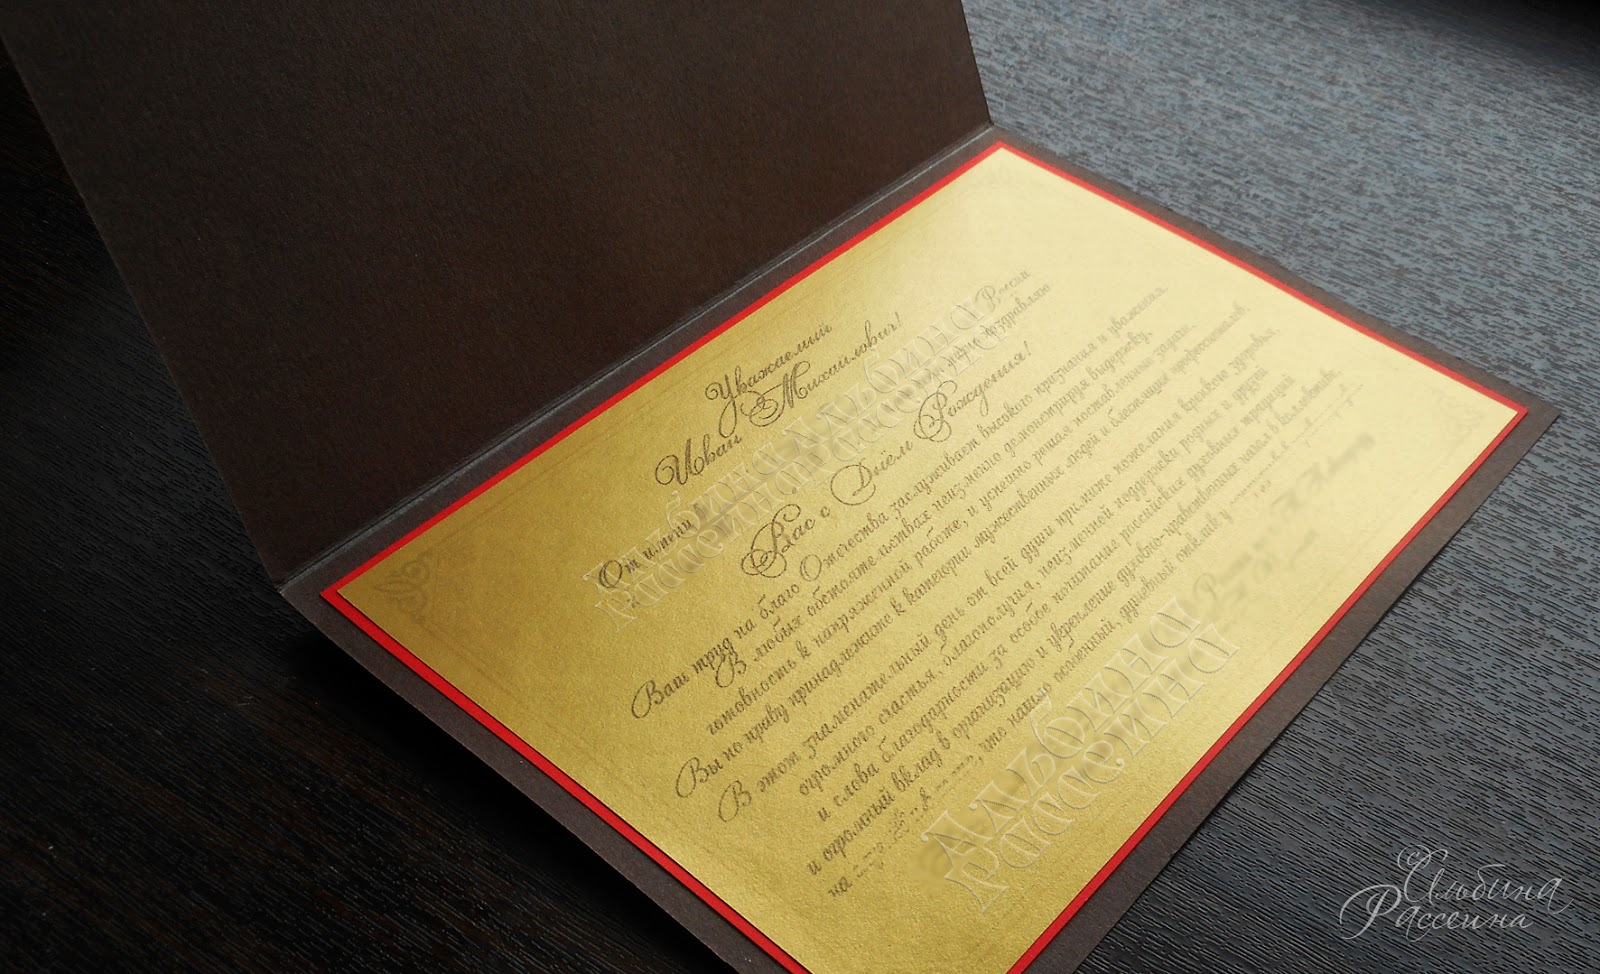 Уважаемый
Иван Михайлович!
От имени России
поздравляю
Вас с Днём Рождения!
Ваш труд на благо Отечества заслуживает высокого признания и уважения.
В любых обстоятельствах неизменно демонстрируя выдержку,
готовность к напряженной работе, и успешно решая поставленные задачи,
Вы по праву принадлежите к категории мужественных людей и блестящих профессионалов.
В этот знаменательный день от всей души примите пожелания крепкого здоровья,
огромного счастья, благополучия, неизменной поддержки родных и друзей
и слова благодарности за особое почитание российских духовных традиций
и огромный вклад в организацию и укрепление духовно-нравственных начал в коллективе,
на что нашло особенный, душевный отклик у
Альбина
Рассеина
Альбина
Рассеина
Альбина
Рассеина
Альбина
Рассеина